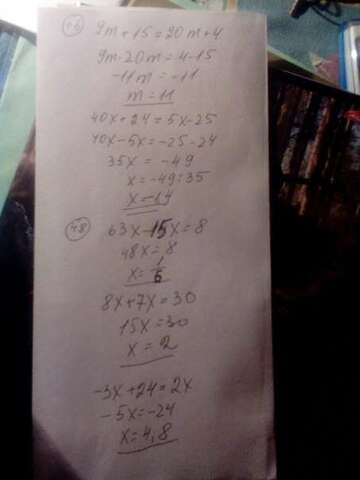 46 9m+15=20m+4
9m-20m=4-15
-11m=-11
m=11
40x+24=5x-25
40x-5x=-25-24
35x=-49
x=-49:35
x=-14
48 63x-15x=8
48x=8
x=1/6
8x+7x=30
15x=30
x=2
-3x+24=2x
-5x=-24
x=4,8